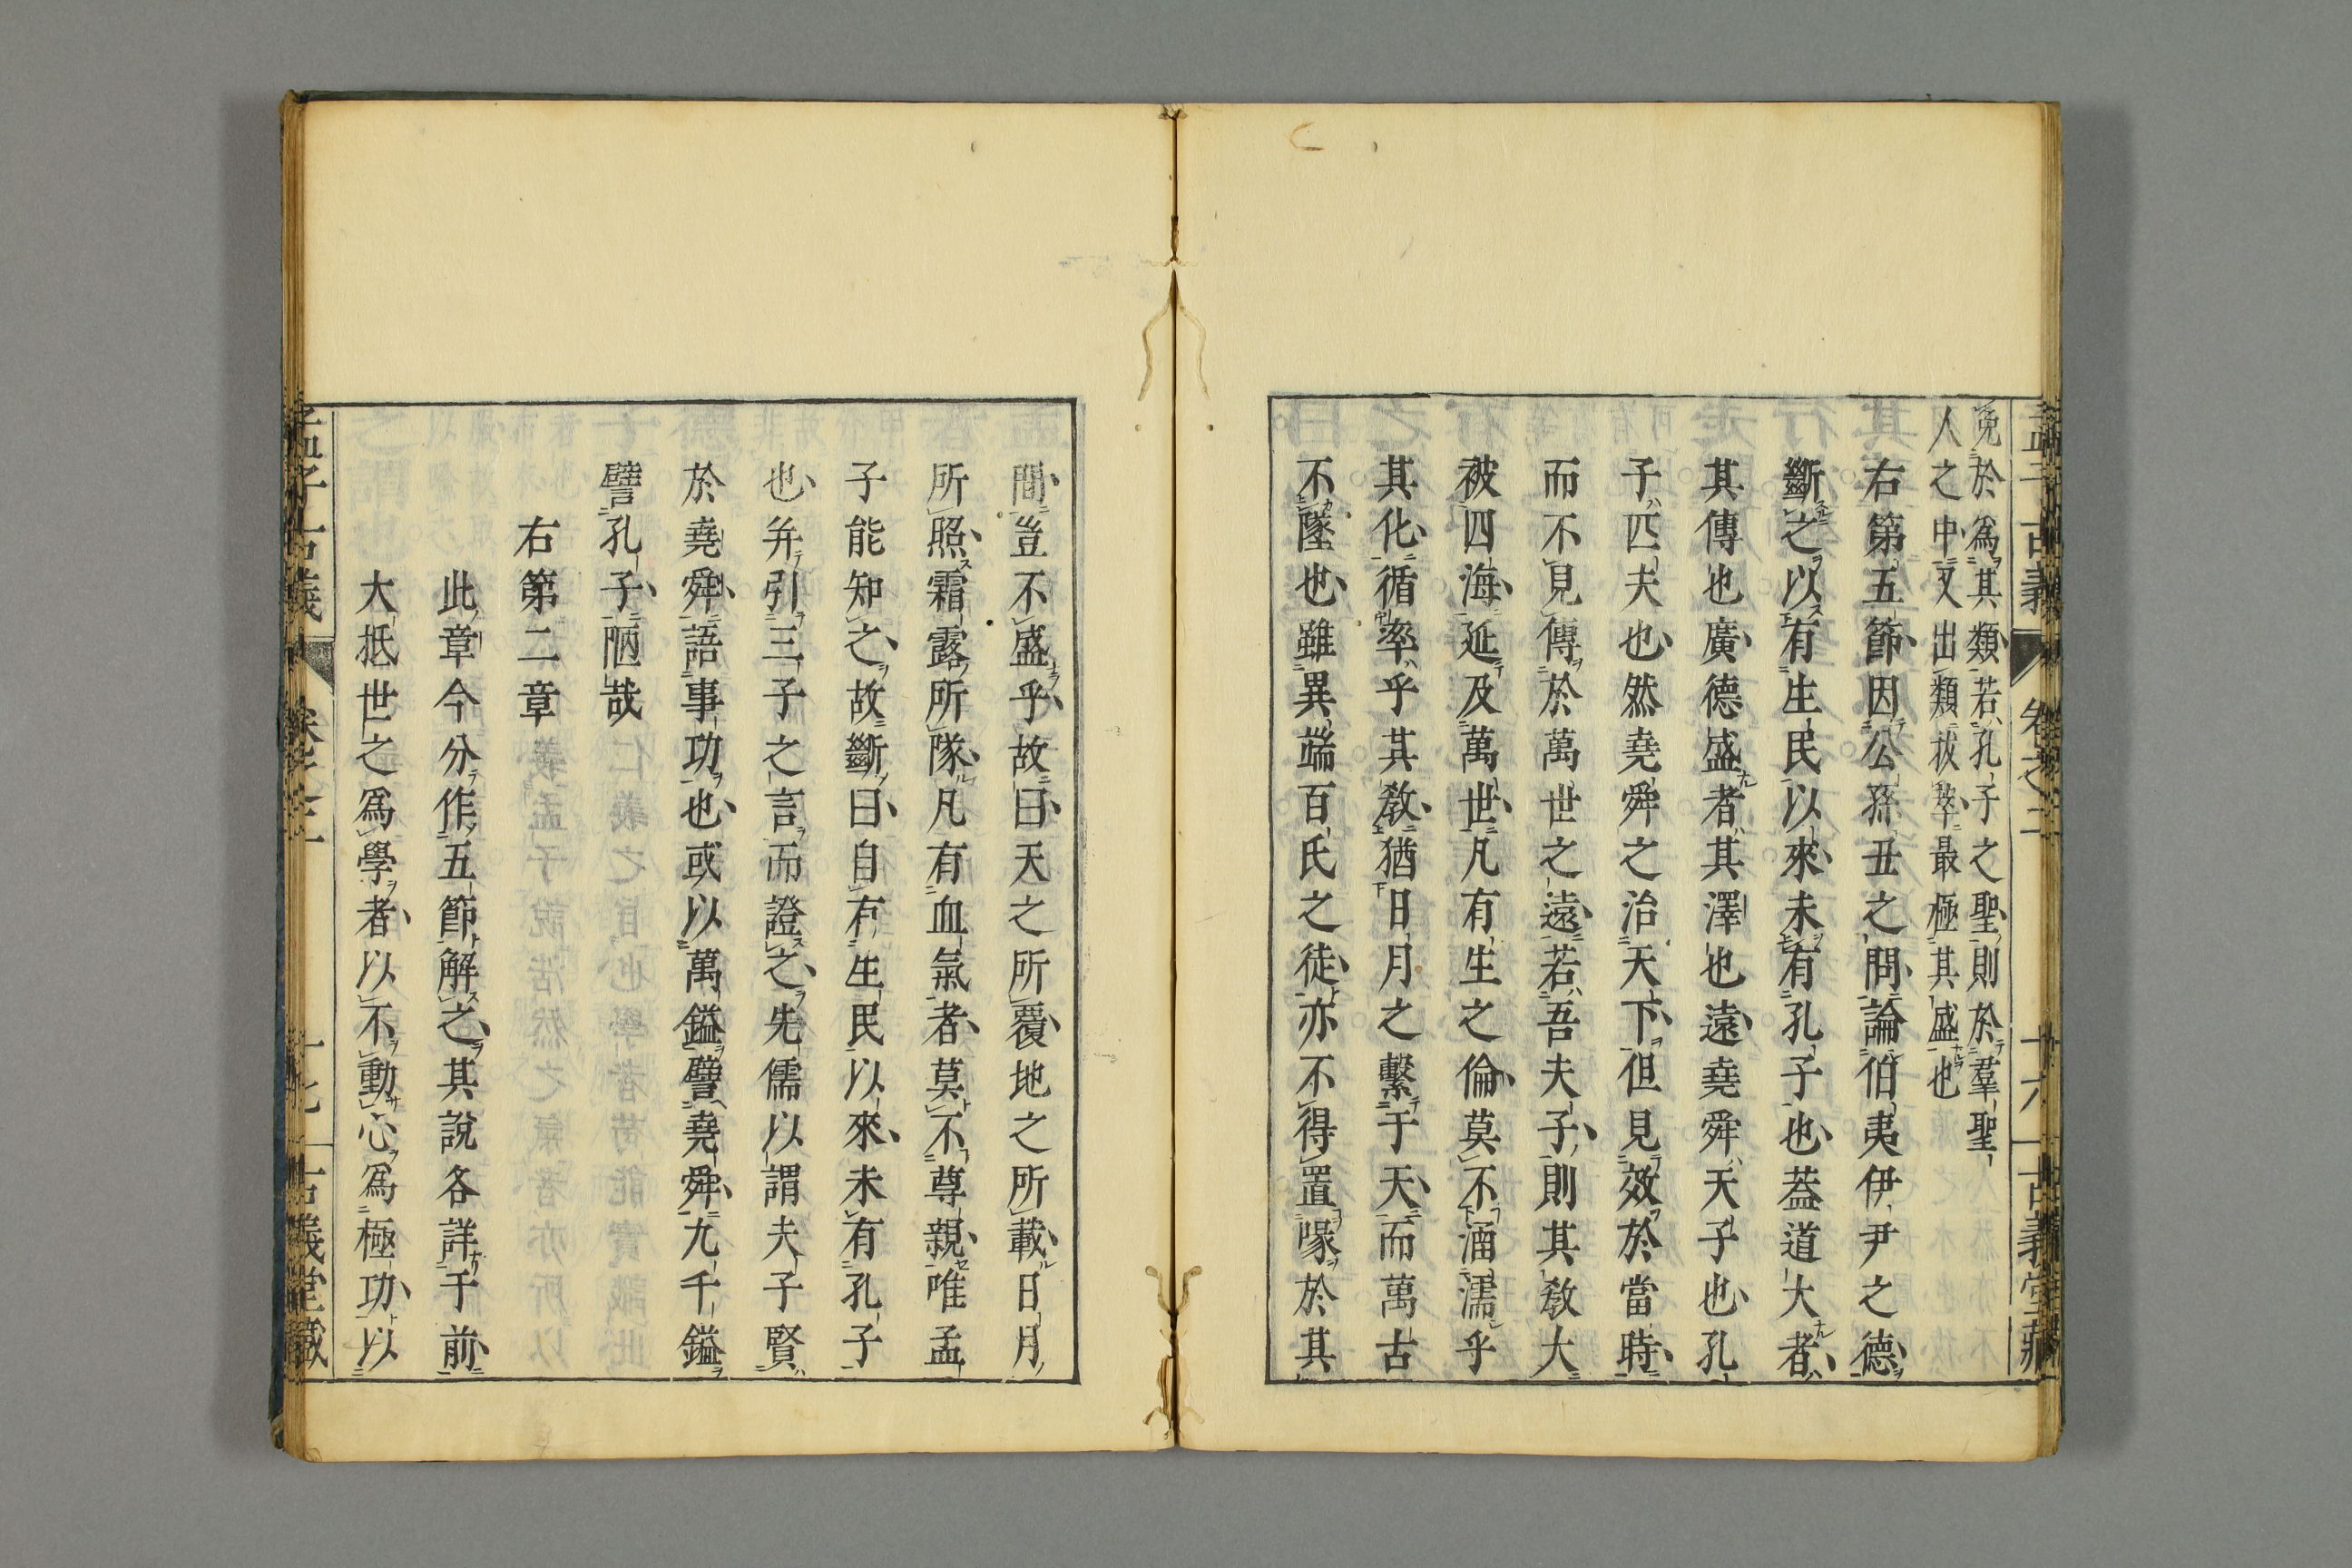 孟子古義 卷之二 十六 古義堂藏
免於爲其類若孔子之聖則於羣聖
人之中又出類拔萃最極其盛也
右第五節因公孫丑之問論伯夷伊尹之德
斷之以有生民以來未有孔子也蓋道大者
其傳也廣德盛者其澤也遠堯舜天子也孔
子匹夫也然堯舜之治天下但見效於當時
而不見傳於萬世之遠若吾夫子則其敎大
被四海延及萬世凡有生之倫莫不涵濡乎
其化循率乎其敎猶日月之繫于天而萬古
不墜也雖異端百氏之徒亦不得置喙於其
間豈不盛乎故曰天之所覆地之所載日月
所照霜露所隊凡有血氣者莫不尊親唯孟
子能知之故斷曰自有生民以來未有孔子
也幷引三子之言而證之先儒以謂夫子賢
於堯舜語事功也或以萬鎰譬堯舜九千鎰
譬孔子陋哉
右第二章
此章今分作五節解之其說各詳于前
大抵世之爲學者以不動心爲極功以
孟子古義 卷之二 十七 古義堂藏